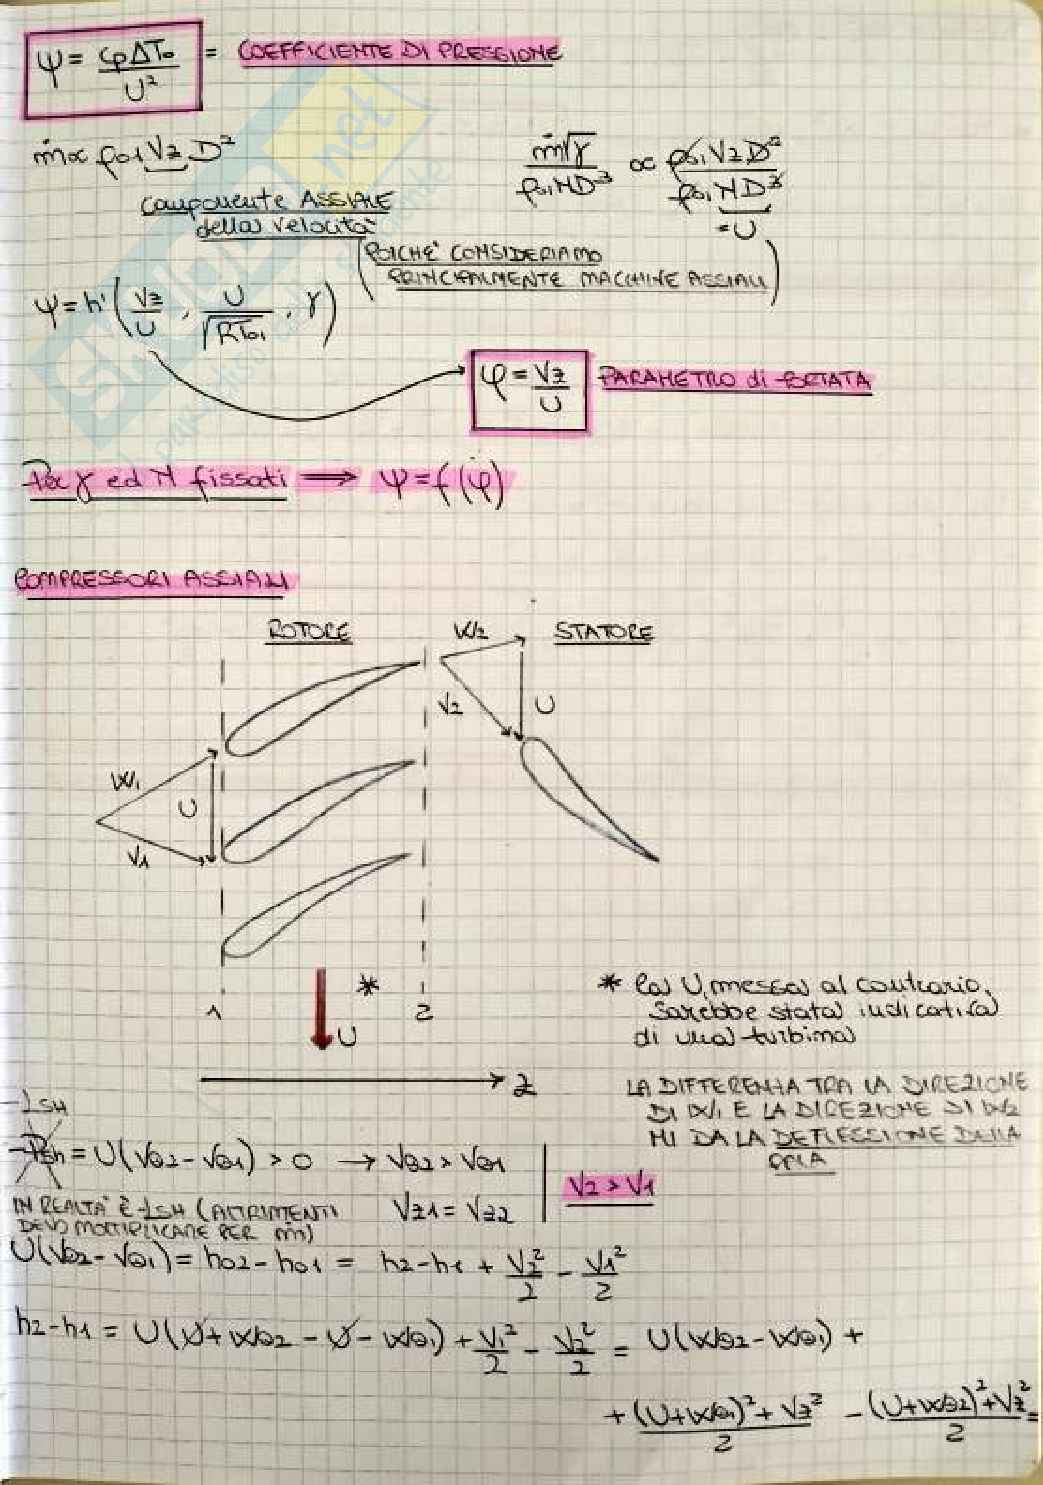 ψ = cpΔT₀/U² = COEFFICIENTE DI PRESSIONE
ṁ ∝ ρ01 Vz D²
componente ASSIALE
della velocità
ṁ√γ / ρ01 N D³ ∝ ρ01 Vz D² / ρ01 N D³
= U
(POICHÈ CONSIDERIAMO
PRINCIPALMENTE MACCHINE ASSIALI)
ψ = h' (Vz/U , U/√RT01 , γ)
φ = Vz/U PARAMETRO di PORTATA
Per γ ed M fissati ⟹ ψ = f(φ)
COMPRESSORI ASSIALI
ROTORE
W2
STATORE
V2
U
W1
U
V1
1
2
*
U
z
* la U, messa al contrario,
sarebbe stata indicativa
di una turbina
LA DIFFERENZA TRA LA DIREZIONE
DI W1 E LA DIREZIONE DI W2
MI DA LA DEFLESSIONE DELLA
PALA
-LSH
-Psh = U(Vθ2 - Vθ1) > 0 → Vθ2 > Vθ1
Vz1 = Vz2
V2 > V1
IN REALTÀ È -LSH (ALTRIMENTI
DEVO MOLTIPLICARE PER ṁ)
U(Vθ2 - Vθ1) = h02 - h01 = h2 - h1 + V2²/2 - V1²/2
h2 - h1 = U(U + Wθ2 - U - Wθ1) + V1²/2 - V2²/2 = U(Wθ2 - Wθ1) +
+ (U+Wθ1)² + Vz² / 2 - (U+Wθ2)² + Vz² / 2 =